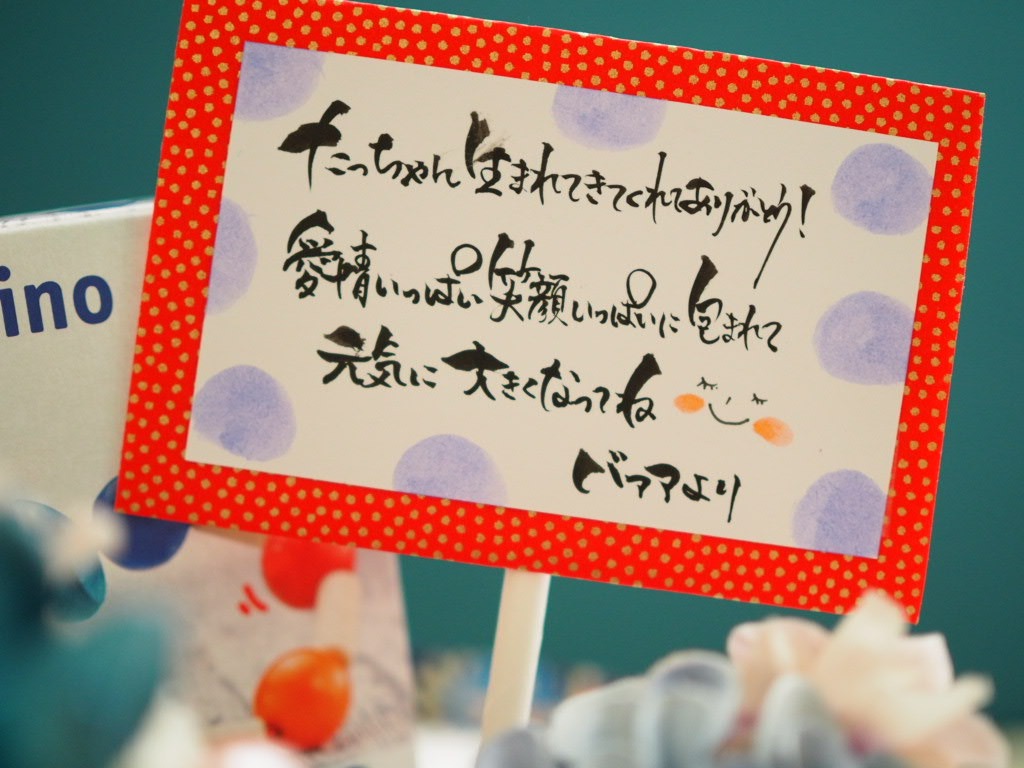 たっちゃん生まれてきてくれてありがとう!
愛情いっぱい笑顔いっぱいに包まれて
元気に大きくなってね
バァァより
ino